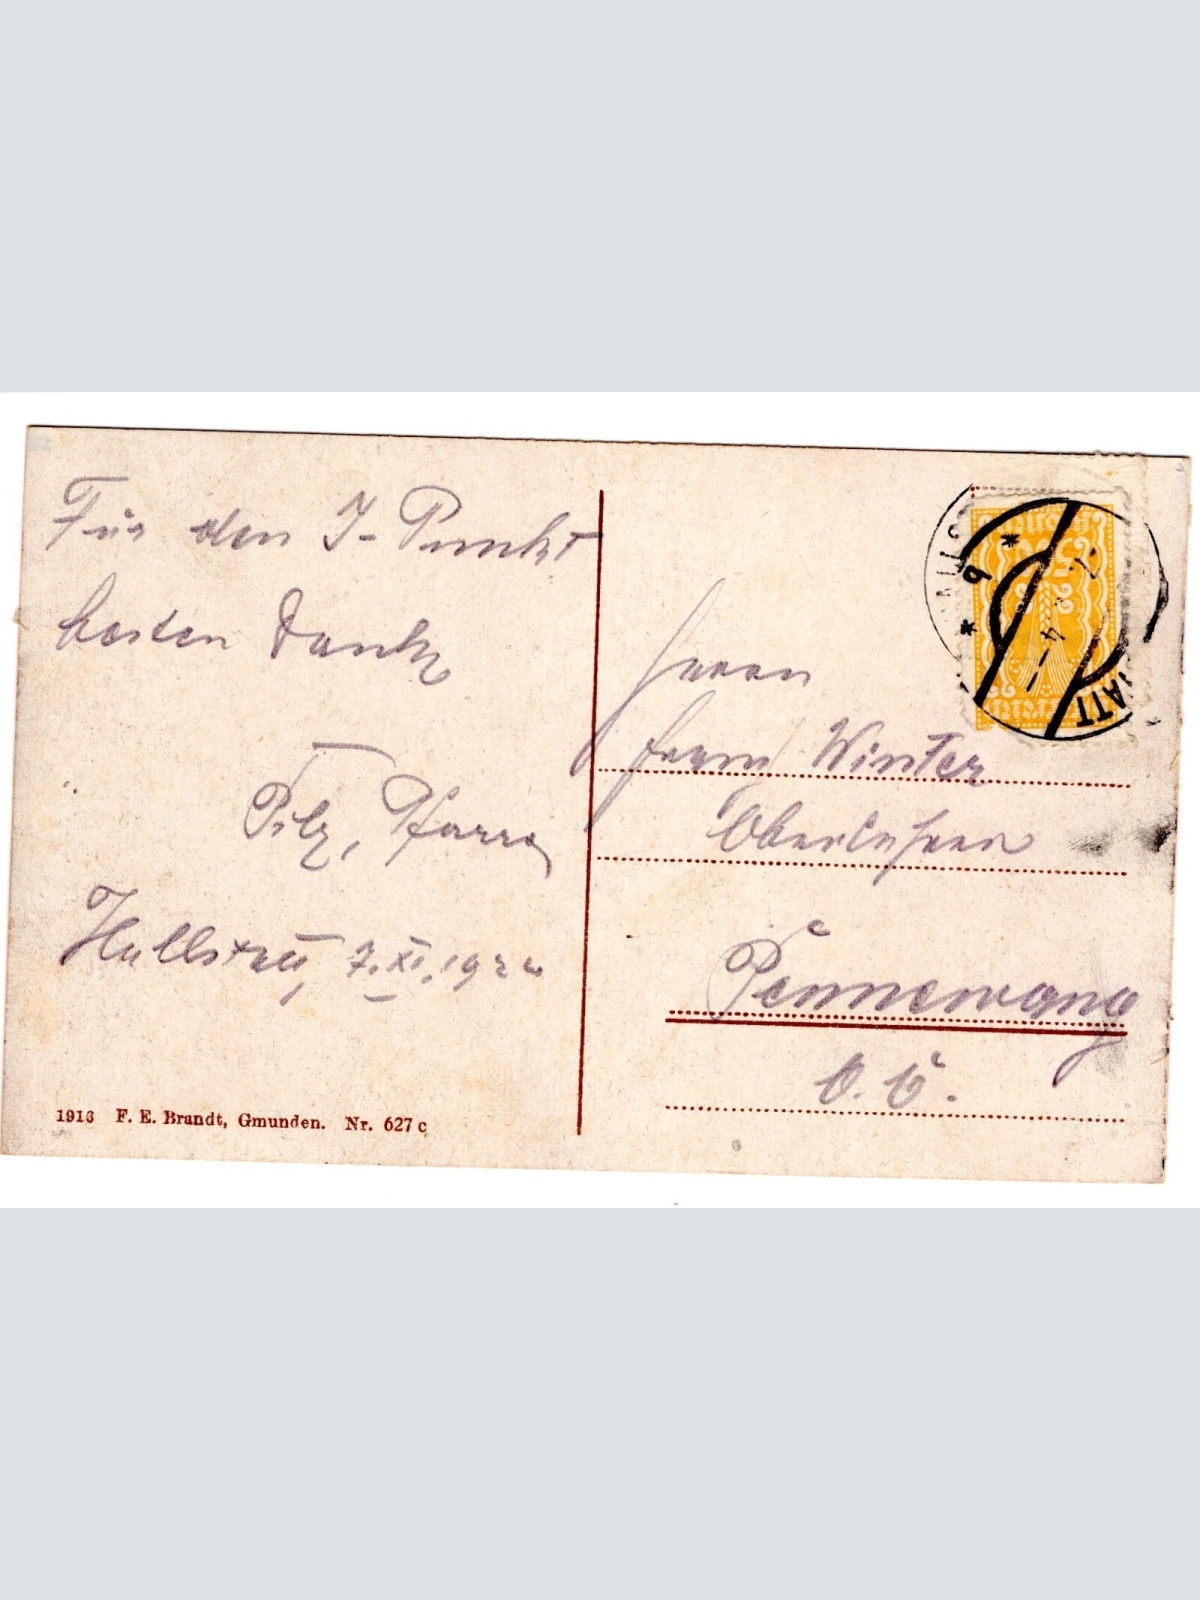 Für den I-Punkt
besten Dank
Pilz, Pfarrer
Hallstatt, 7. XI. 1922
1916 F. E. Brandt, Gmunden. Nr. 627 c
Herrn
Franz Winter
Oberlehrer
Pennewang
O. Ö.
HALLSTATT
* 9 *